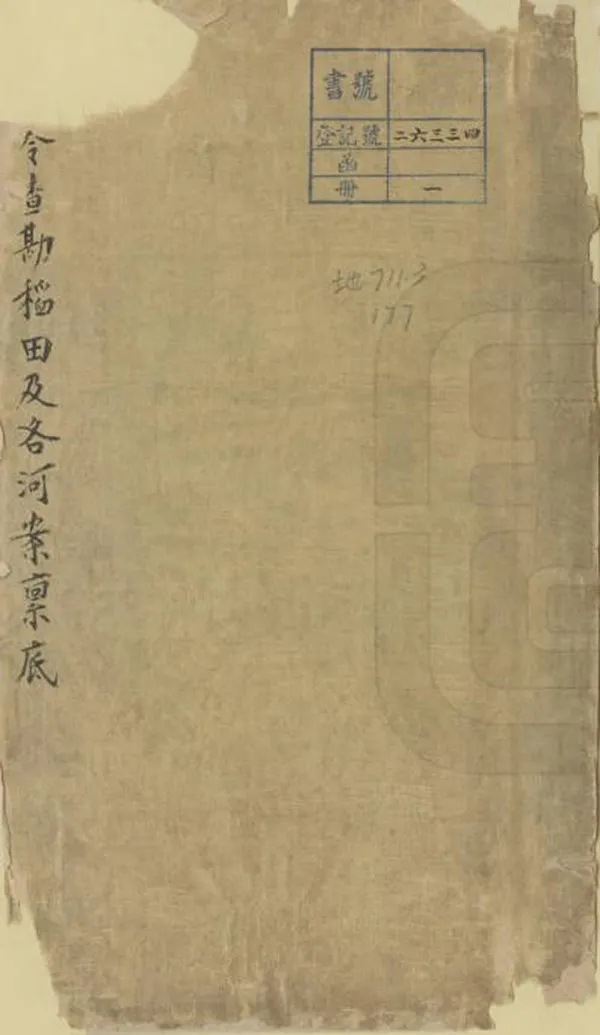 書號
登記號 二六三三四
函
冊 一
地711.3
177
令查勘稻田及各河案稟底